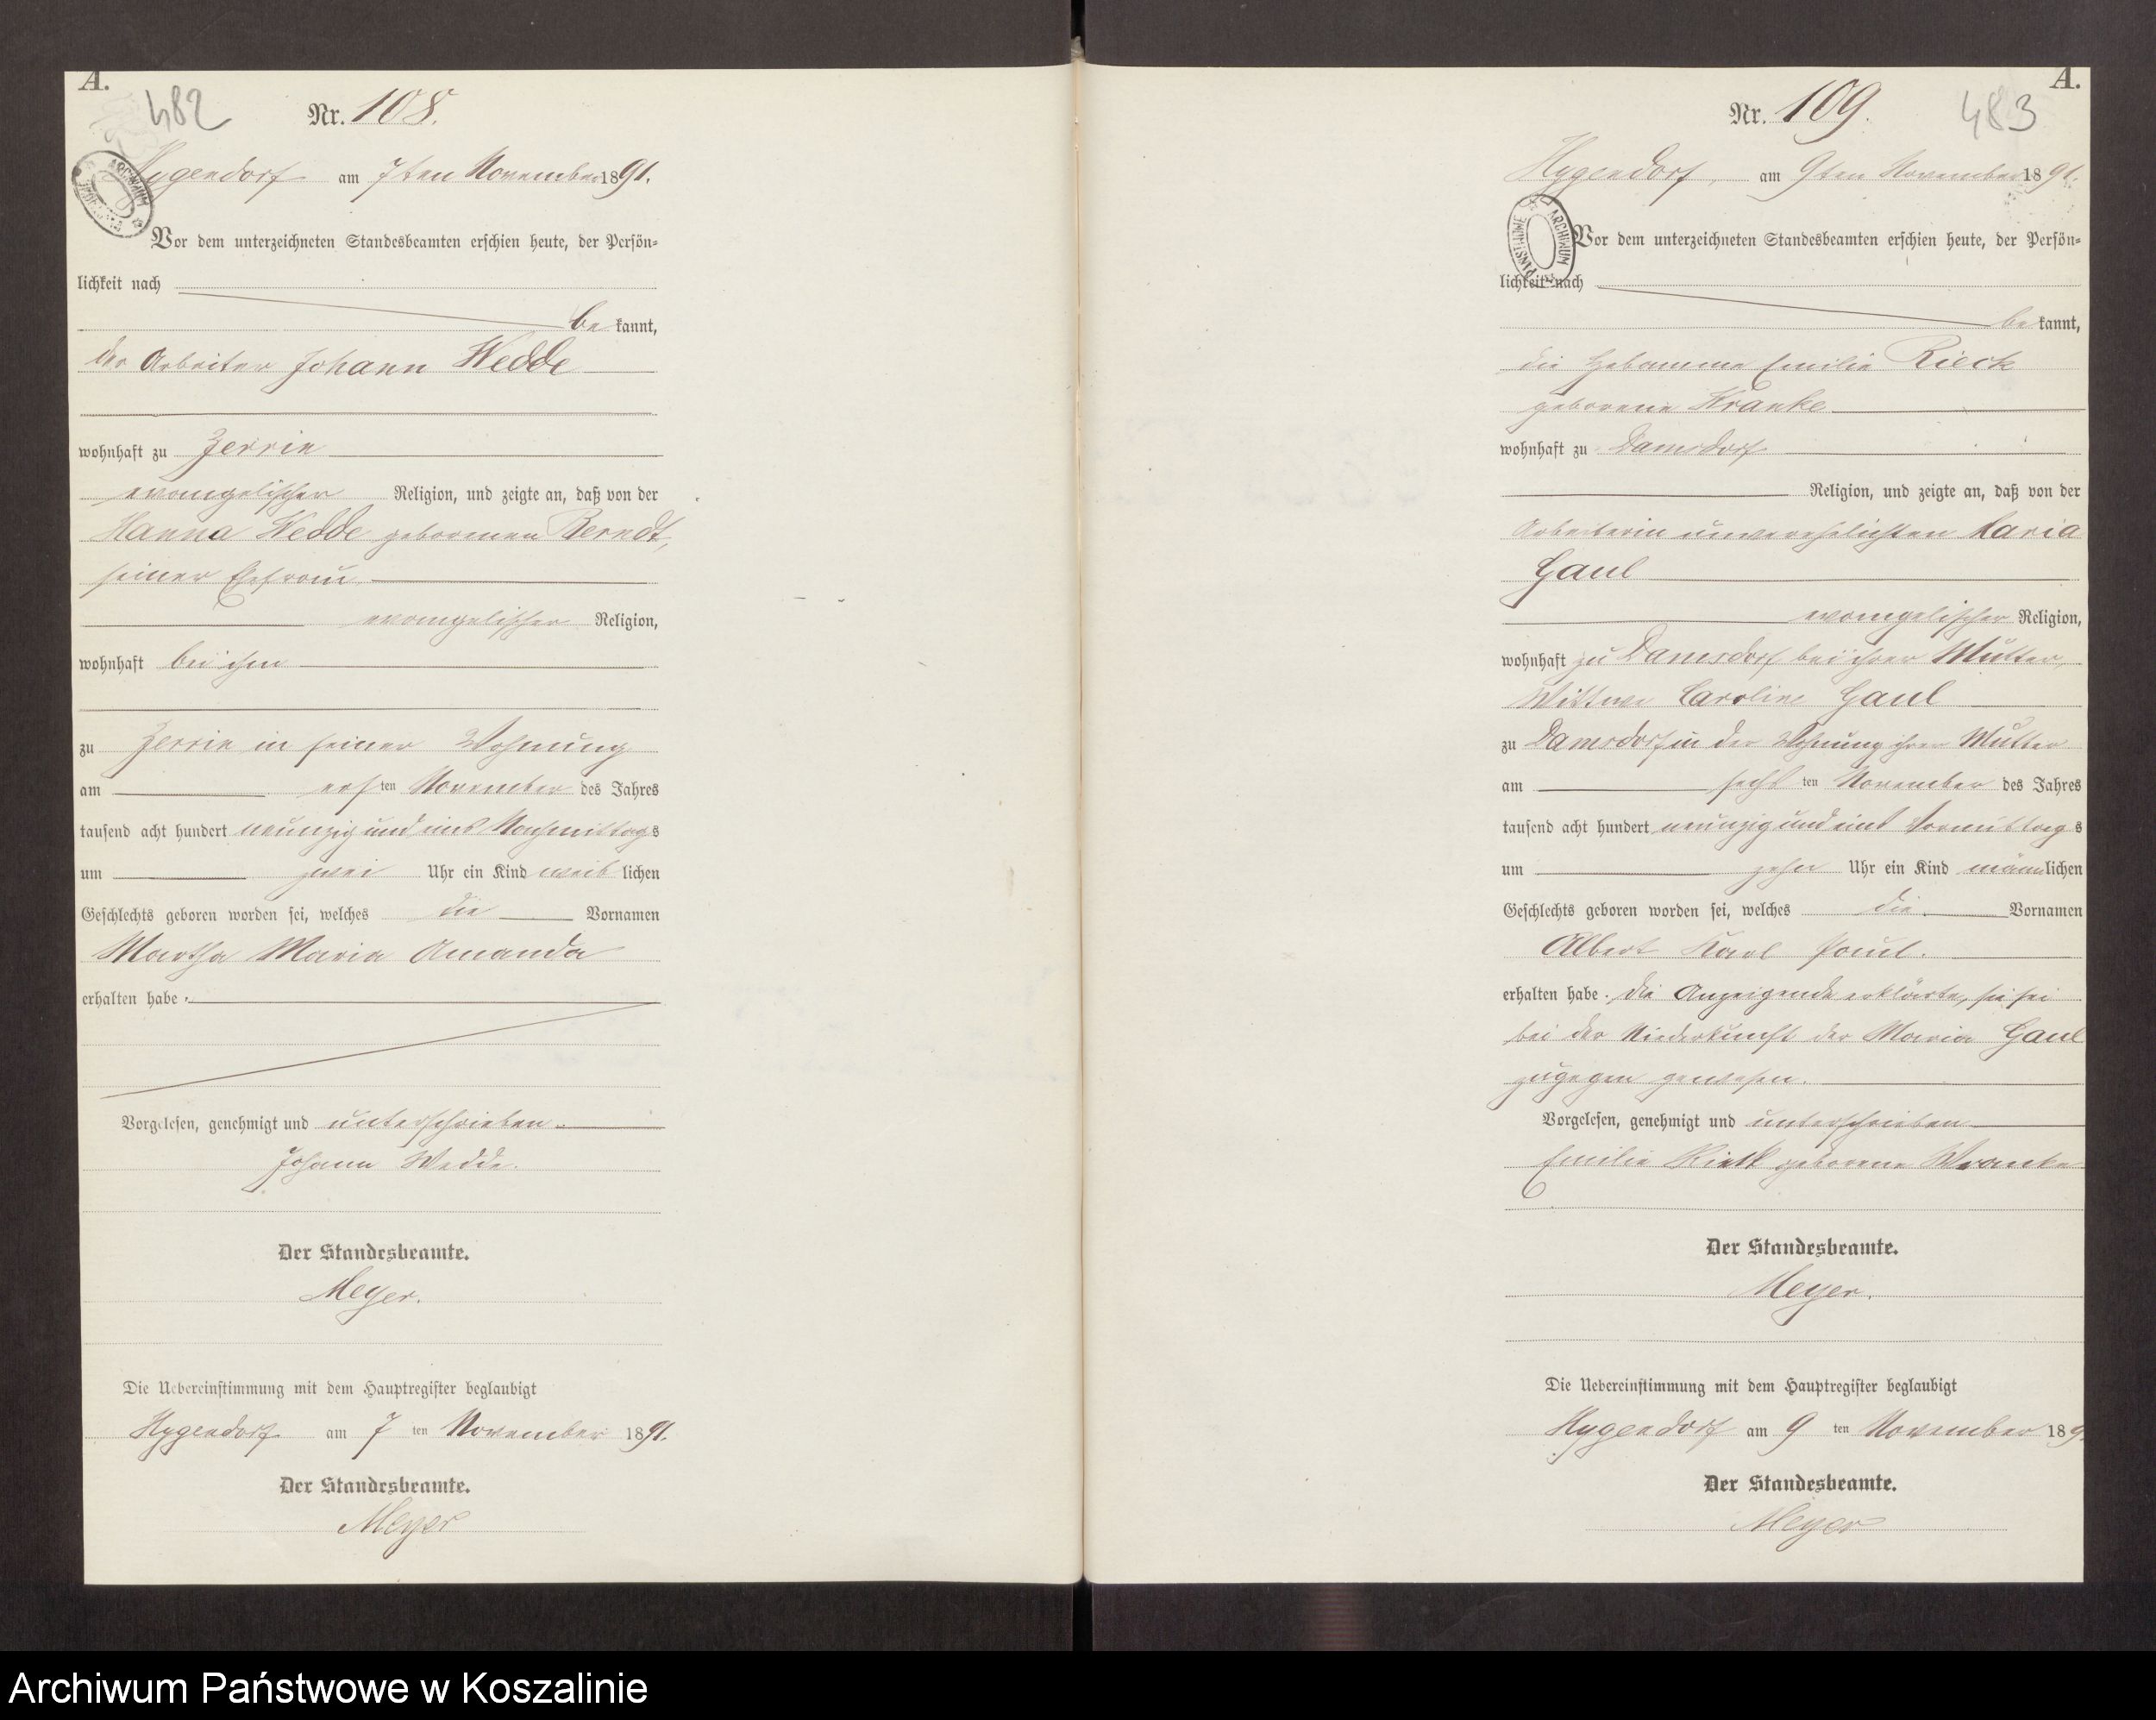 A.
482
Nr. 108.
Hygendorf am 7ten November 1891.
ARCHIWUM
Vor dem unterzeichneten Standesbeamten erschien heute, der Persön=
lichkeit nach
be kannt,
der Arbeiter Johann Wedde
wohnhaft zu Zerrin
evangelischer Religion, und zeigte an, daß von der
Hanna Wedde geborenen Berndt,
seiner Ehefrau
evangelischer Religion,
wohnhaft bei ihm
zu Zerrin in seiner Wohnung
am ersten November des Jahres
tausend acht hundert neunzig und eins Nachmittags
um zwei Uhr ein Kind weiblichen
Geschlechts geboren worden sei, welches die Vornamen
Martha Maria Amanda
erhalten habe.
Vorgelesen, genehmigt und unterschrieben.
Johann Wedde.
Der Standesbeamte.
Meyer.
Die Uebereinstimmung mit dem Hauptregister beglaubigt
Hygendorf am 7 ten November 1891.
Der Standesbeamte.
Meyer
A.
483
Nr. 109.
Hygendorf, am 9ten November 1891.
ARCHIWUM PAŃSTWOWE
Vor dem unterzeichneten Standesbeamten erschien heute, der Persön=
lichkeit nach
be kannt,
die Hebamme Emilie Rieck
geborene Wranke
wohnhaft zu Damsdorf
Religion, und zeigte an, daß von der
Arbeiterin unverehelichten Maria
Gaul
evangelischer Religion,
wohnhaft zu Damsdorf bei ihrer Mutter,
Wittwe Caroline Gaul
zu Damsdorf in der Wohnung ihrer Mutter
am sechs ten November des Jahres
tausend acht hundert neunzig und eins Vormittags
um zehn Uhr ein Kind männlichen
Geschlechts geboren worden sei, welches die Vornamen
Albert Karl Paul.
erhalten habe. Die Anzeigende erklärte, sie sei
bei der Niederkunft der Maria Gaul
zugegen gewesen.
Vorgelesen, genehmigt und unterschrieben
Emilie Rieck geborene Wranke
Der Standesbeamte.
Meyer.
Die Uebereinstimmung mit dem Hauptregister beglaubigt
Hygendorf am 9 ten November 189
Der Standesbeamte.
Meyer
Archiwum Państwowe w Koszalinie